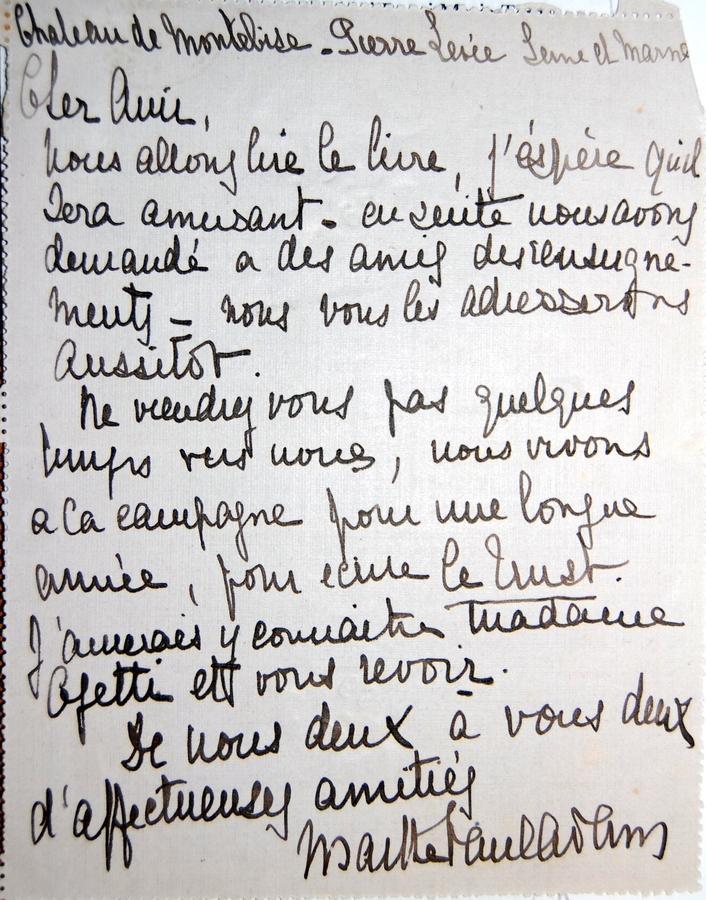 Chateau de Montebise - Pierre Levée Seine et Marne
Cher Ami,
nous allons lire le livre, j'éspère qu'il
sera amusant - ensuite nous avons
demandé a des amis des renseigne-
ments - nous vous les adresserons
aussitôt.
Ne viendrez vous pas quelques
temps vers nous, nous vivons
a la campagne pour une longue
année, pour ecrire le Trust.
J'aimerais y connaitre Madame
Ojetti et vous revoir.
De nous deux à vous deux
d'affectueuses amitiés
Marthe Paul Adam